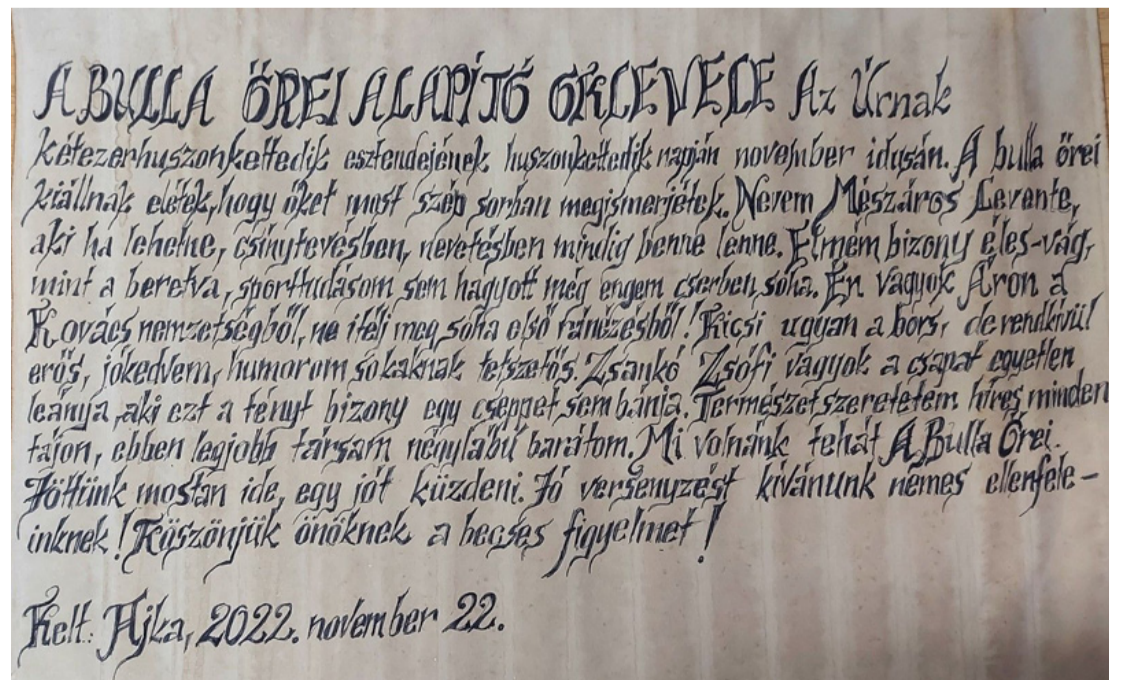 A BULLA ŐREI ALAPÍTÓ OKLEVELE Az Úrnak
kétezerhuszonkettedik esztendejének huszonkettedik napján november idusán. A bulla őrei
kiállnak elétek, hogy őket most szép sorban megismerjétek. Nevem Mészáros Levente,
aki ha lehetne, csínytevésben, nevetésben mindig benne lenne. Elmém bizony éles-vág,
mint a beretva, sporttudásom sem hagyott még engem cserben soha. Én vagyok Áron a
Kovács nemzetségből, ne ítélj meg soha első ránézésből! Kicsi ugyan a bors, de rendkívül
erős, jókedvem, humorom sokaknak tetszetős. Zsankó Zsófi vagyok a csapat egyetlen
leánya, aki ezt a tényt bizony egy cseppet sem bánja. Természetszeretetem híres minden
tájon, ebben legjobb társam négylábú barátom. Mi volnánk tehát A Bulla Őrei.
Jöttünk mostan ide, egy jót küzdeni. Jó versenyzést kívánunk nemes ellenfele-
inknek! Köszönjük önöknek a becses figyelmet!
Kelt: Ajka, 2022. november 22.